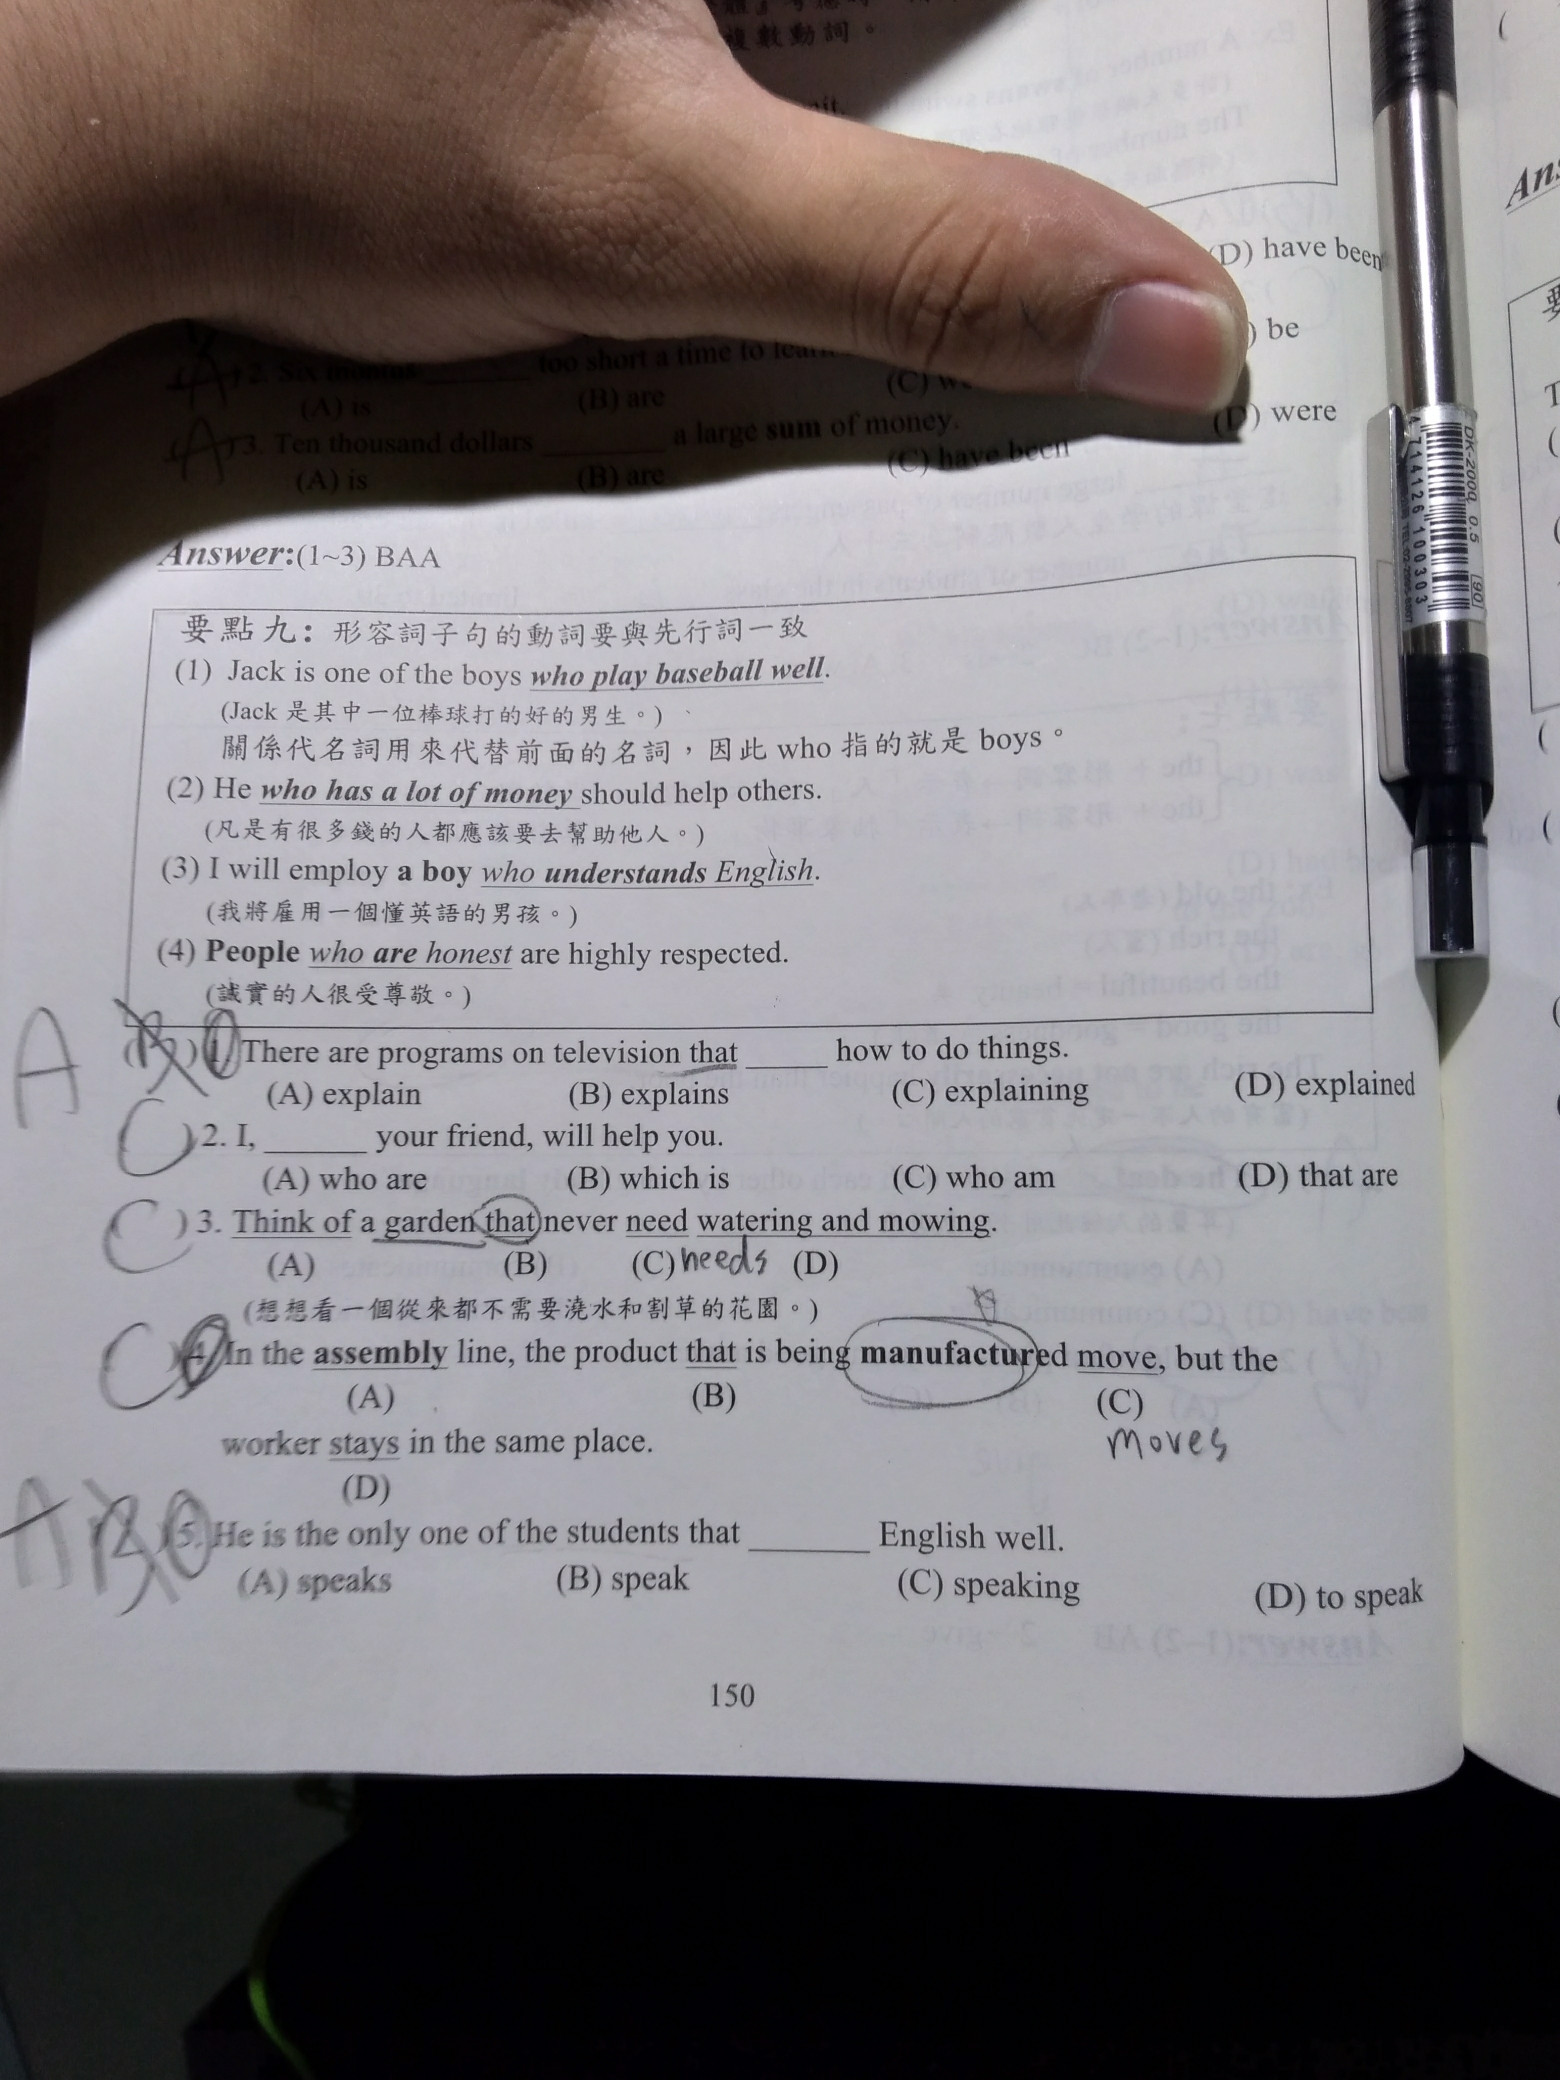 複數動詞。
(D) have been
be
2. Six months ______ too short a time to
(A) is (B) are (C) (D) were
A 3. Ten thousand dollars ______ a large sum of money.
(A) is (B) are (C) have been
Answer:(1~3) BAA
要點九：形容詞子句的動詞要與先行詞一致
(1) Jack is one of the boys who play baseball well.
(Jack 是其中一位棒球打的好的男生。)
關係代名詞用來代替前面的名詞，因此 who 指的就是 boys。
(2) He who has a lot of money should help others.
(凡是有很多錢的人都應該要去幫助他人。)
(3) I will employ a boy who understands English.
(我將雇用一個懂英語的男孩。)
(4) People who are honest are highly respected.
(誠實的人很受尊敬。)
A ( ) 1. There are programs on television that _____ how to do things.
(A) explain (B) explains (C) explaining (D) explained
(C) 2. I, ______ your friend, will help you.
(A) who are (B) which is (C) who am (D) that are
(C) 3. Think of a garden that never need watering and mowing.
(A) (B) (C) needs (D)
(想想看一個從來都不需要澆水和割草的花園。)
(C) 4. In the assembly line, the product that is being manufactured move, but the
(A) (B) (C)
moves
worker stays in the same place.
(D)
A ( ) 5. He is the only one of the students that _______ English well.
(A) speaks (B) speak (C) speaking (D) to speak
150
DK-2000 0.5
4 714126 100303